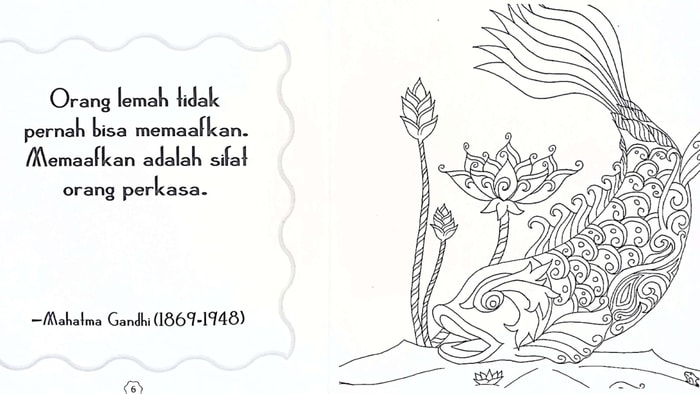 Orang lemah tidak
pernah bisa memaafkan.
Memaafkan adalah sifat
orang perkasa.
—Mahatma Gandhi (1869-1948)
6